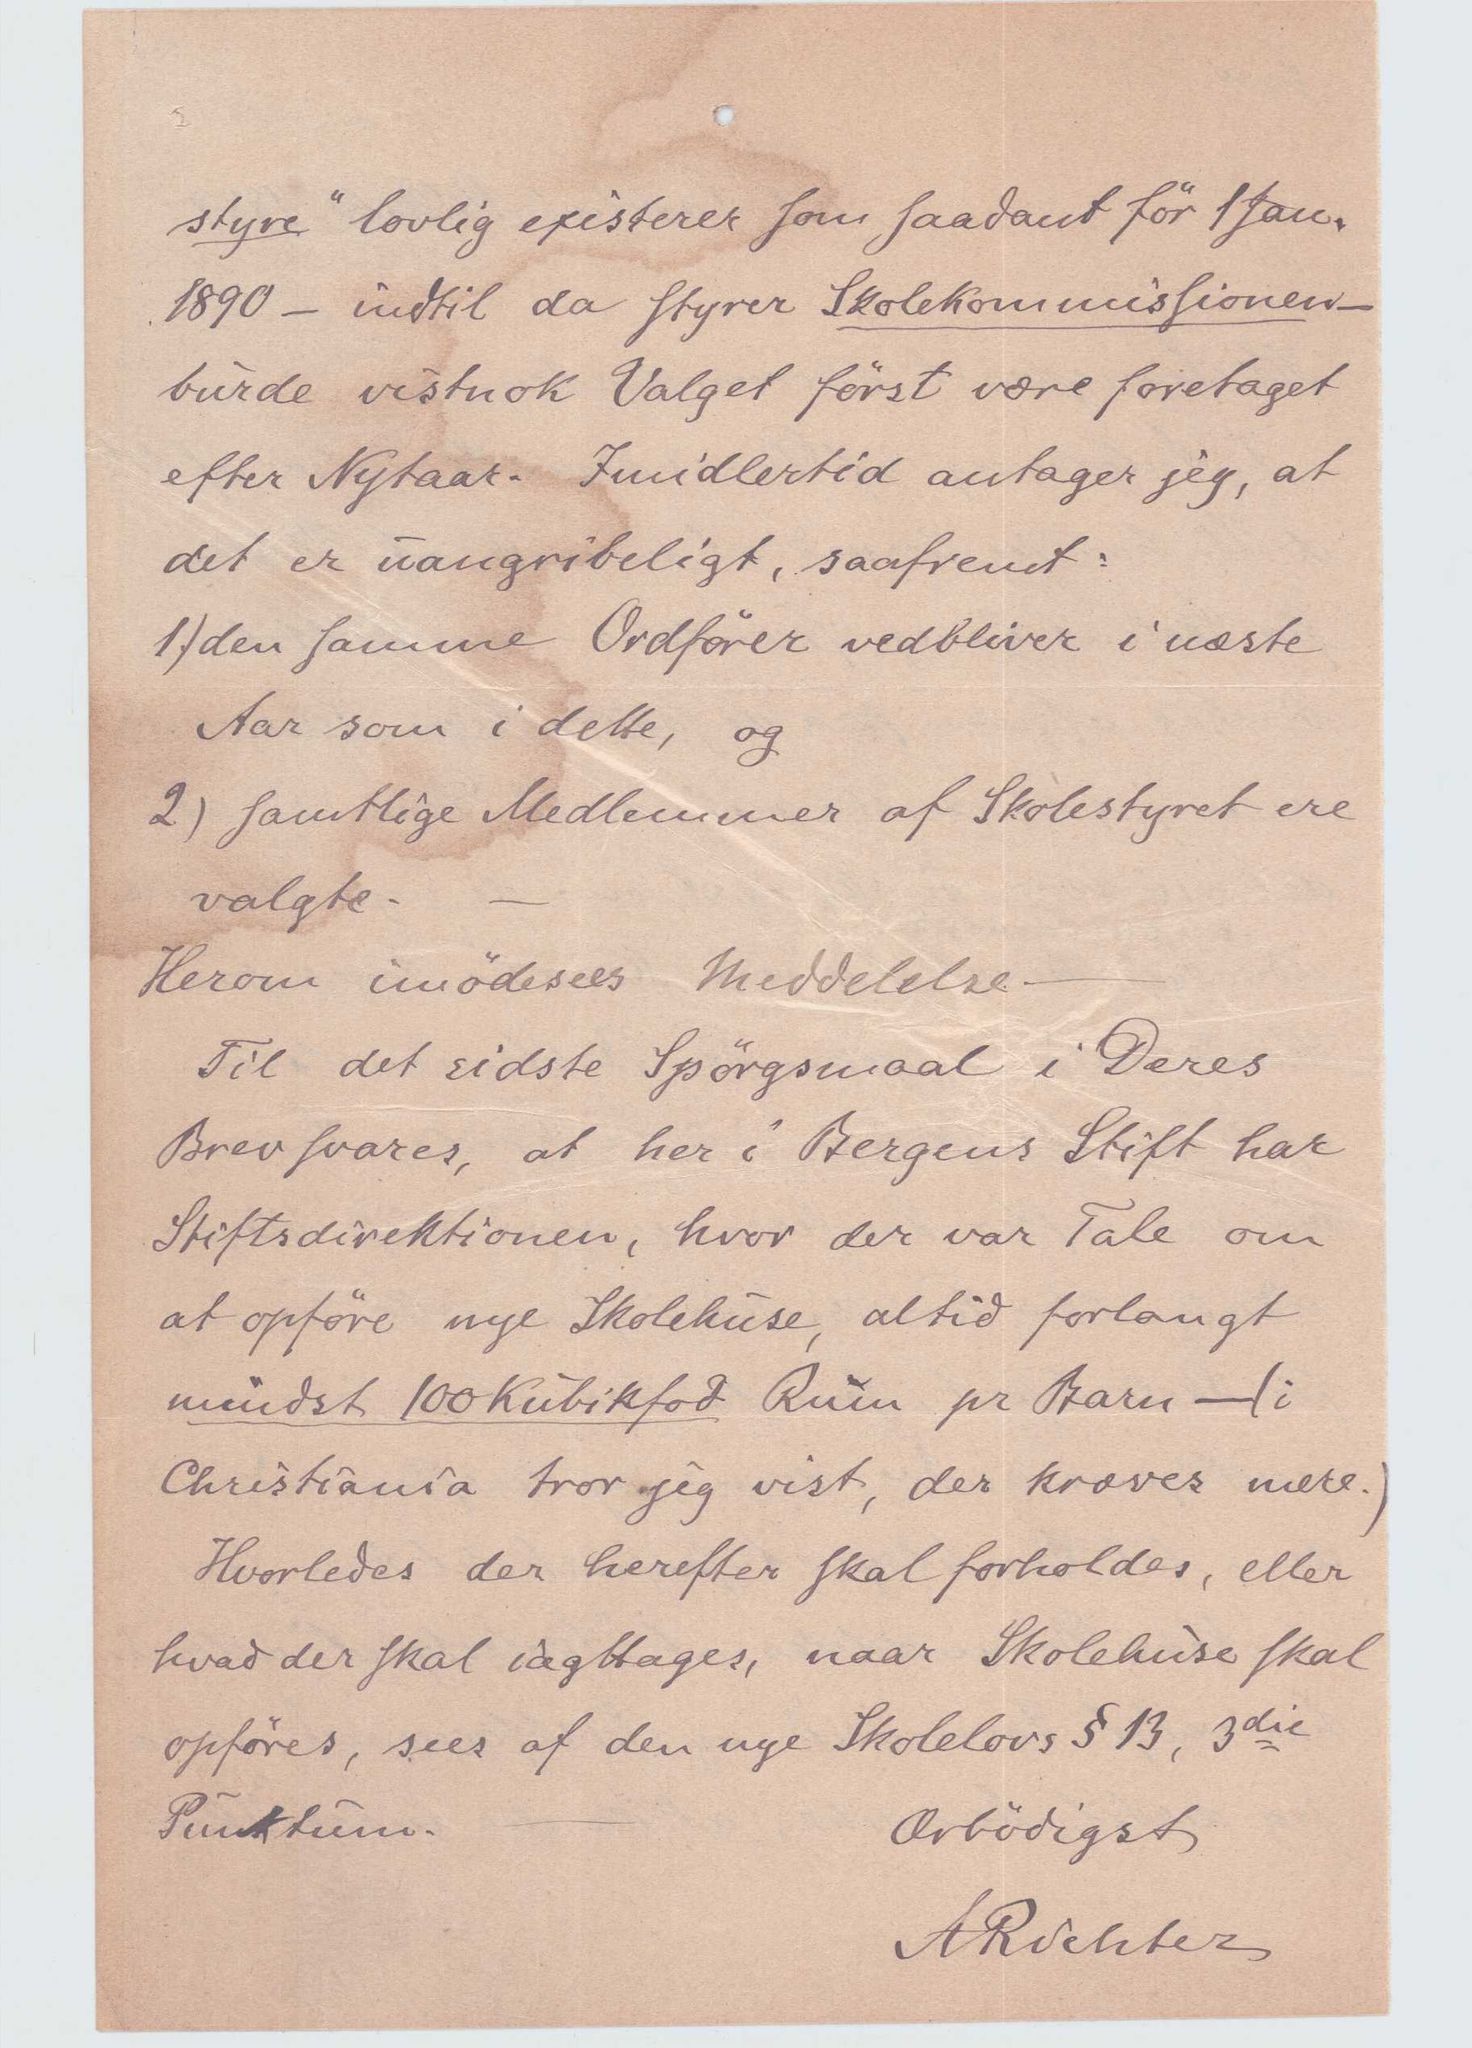 styre" lovlig existerer som saadant för 1 Jan.
1890 – indtil da styrer Skolekommissionen –
burde vistnok Valget först være foretaget
efter Nytaar. Imidlertid antager jeg, at
det er uangribeligt, saafremt:
1) den samme Ordförer vedbliver i næste
Aar som i dette, og
2) samtlige Medlemmer af Skolestyret ere
valgte. —
Herom imödesees Meddelelse —
Til det sidste Spörgsmaal i Deres
Brev svares, at her i Bergens Stift har
Stiftsdirektionen, hvor der var Tale om
at opföre nye Skolehuse, altid forlangt
mindst 100 Kubikfod Rum pr Barn — (i
Christiania tror jeg vist, der kræves mere.)
Hvorledes der herefter skal forholdes, eller
hvad der skal iagttages, naar Skolehuse skal
opföres, sees af den nye Skolelovs § 13, 3die
Punktum. —
Ærbödigst
ARichter